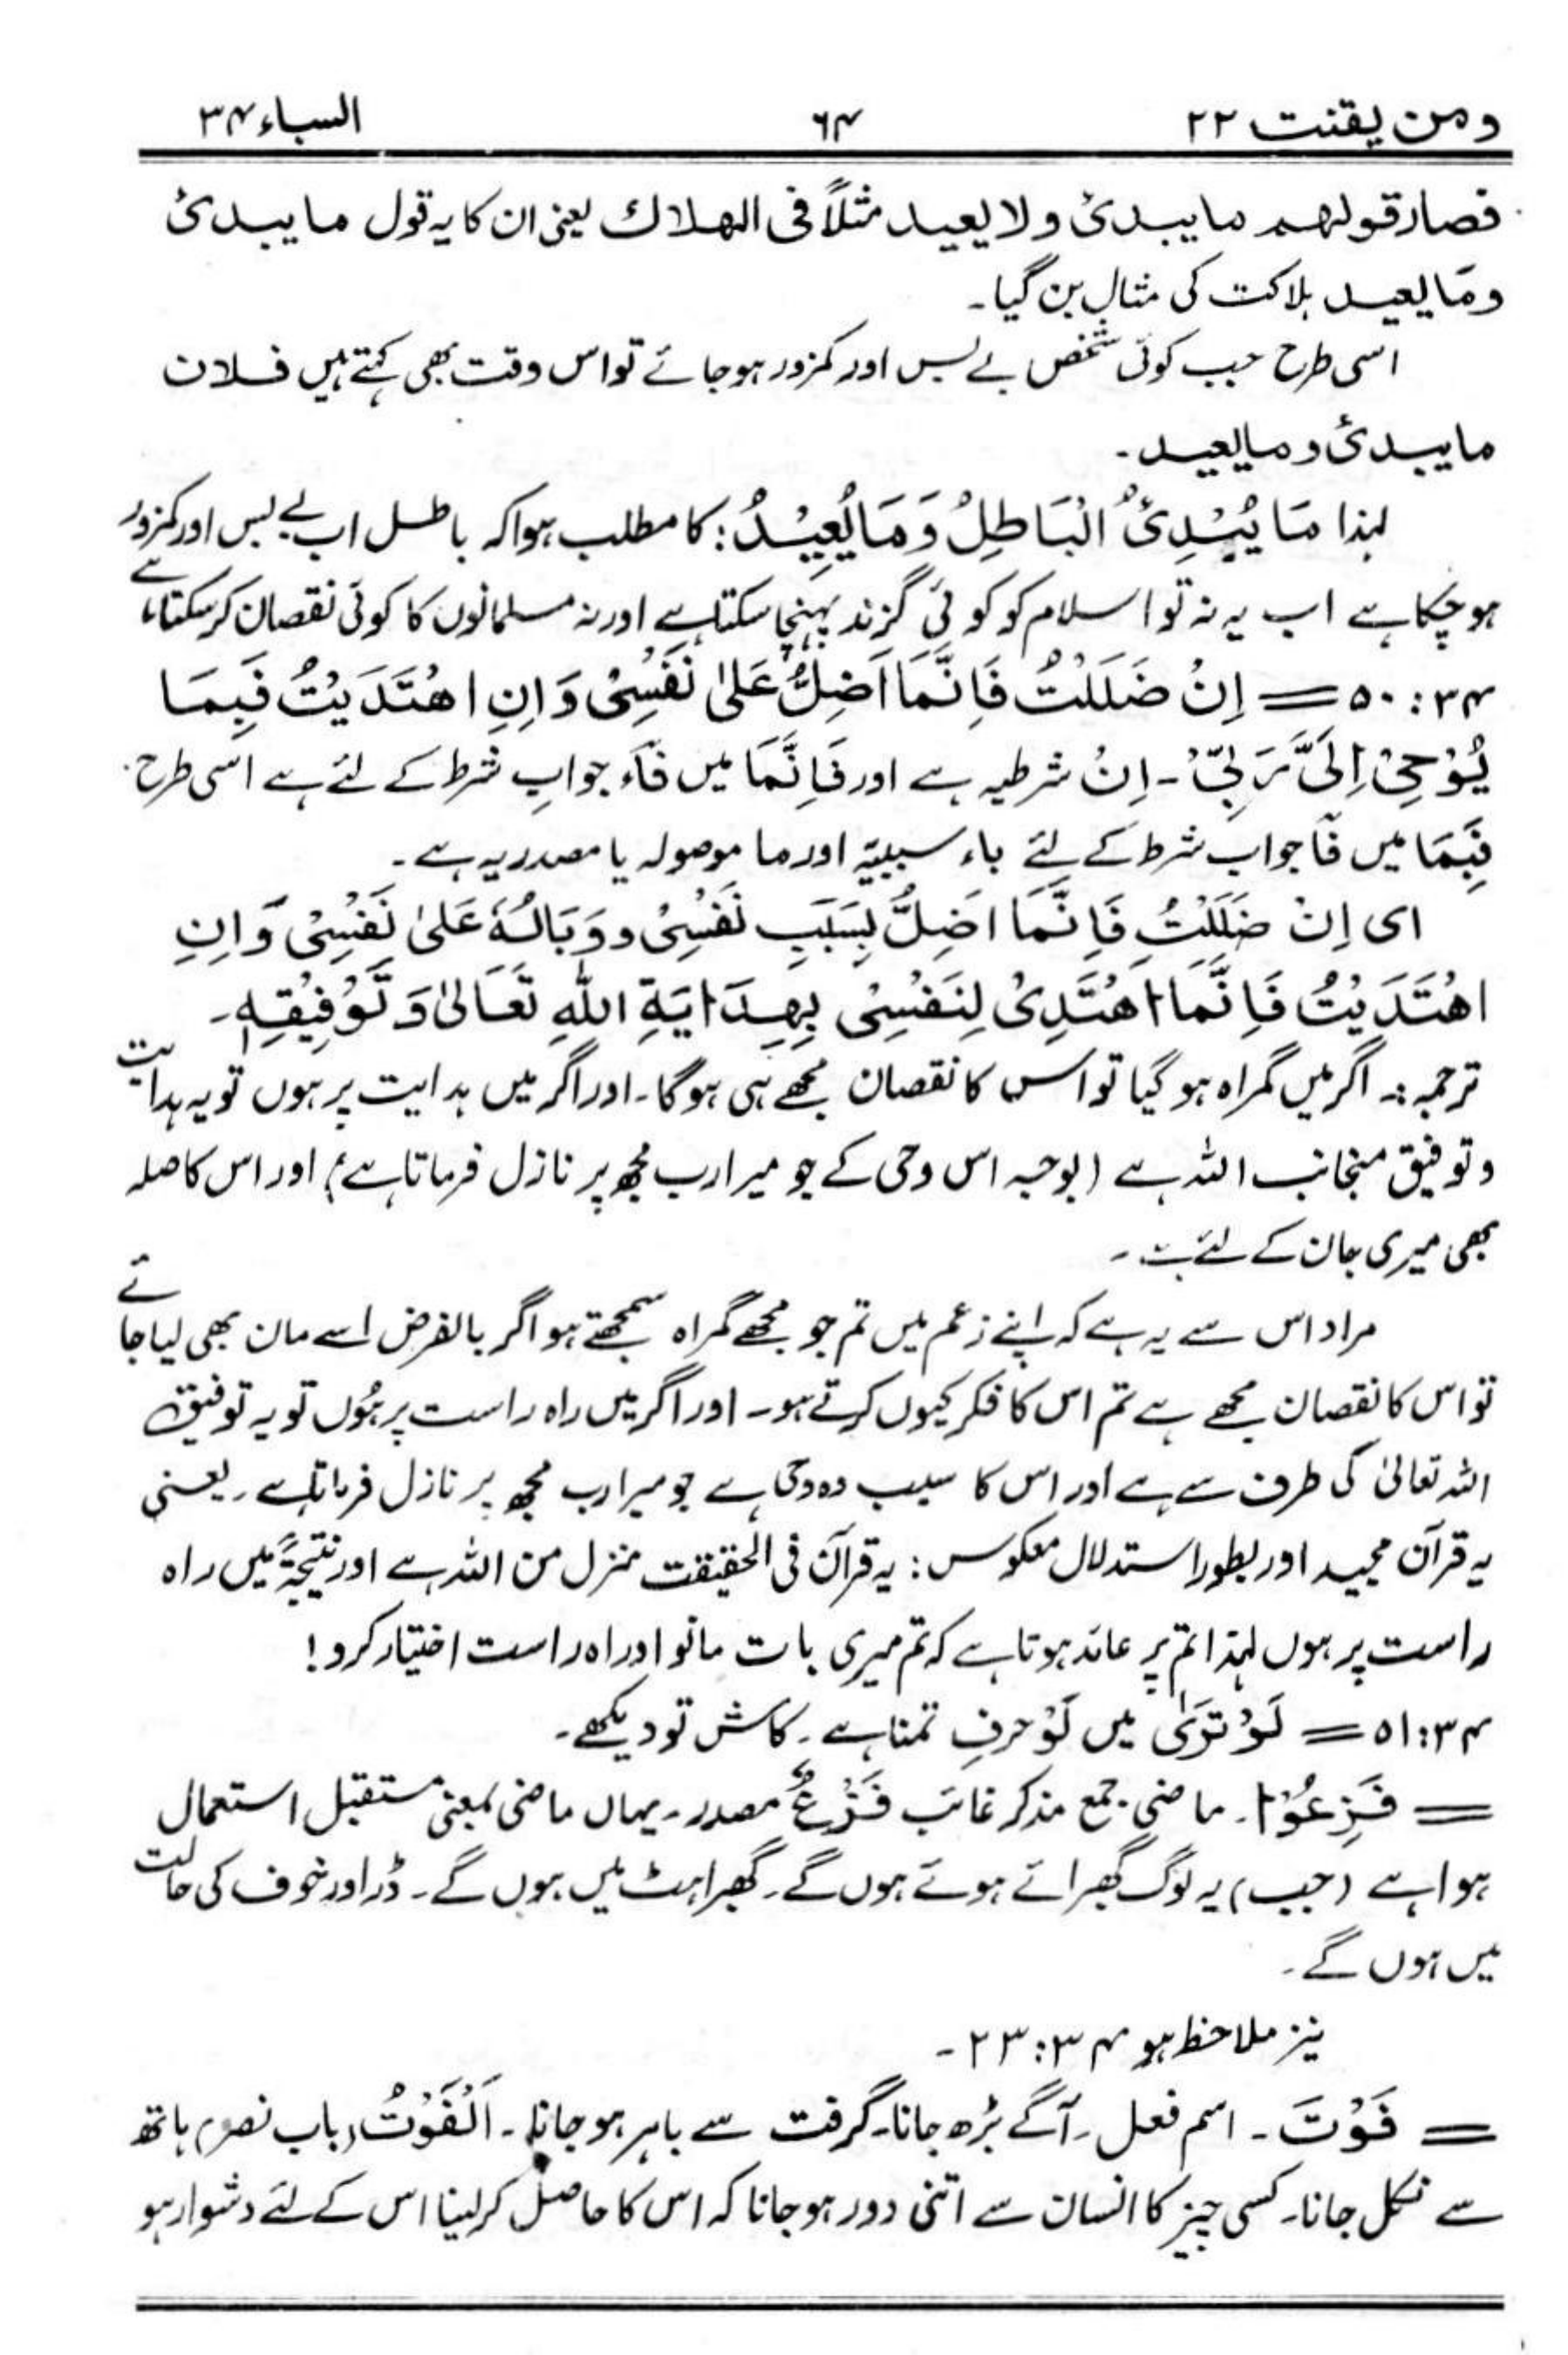 ومن یقنت ۲۲ ۶۴ السباء ۳۴
فصار قولہم ما یبدئ ولا یعید مثلاً فی الھلاک یعنی ان کا یہ قول ما یبدئ
ومَا یعید ہلاکت کی مثال بن گیا۔
اسی طرح جب کوئی شخص بے بس اور کمزور ہو جائے تو اس وقت بھی کہتے ہیں فلان
ما یبدئ و ما یعید۔
لہذا مَا یُبْدِیُٔ الْبَاطِلُ وَمَا یُعِیْدُ: کا مطلب ہوا کہ باطل اب بے بس اور کمزور
ہو چکا ہے اب یہ نہ تو اسلام کو کوئی گزند پہنچا سکتا ہے اور نہ مسلمانوں کا کوئی نقصان کر سکتا ہے
۳۴: ۵۰ = اِنْ ضَلَلْتُ فَاِنَّمَا اَضِلُّ عَلیٰ نَفْسِیْ وَاِنِ اهْتَدَیْتُ فَبِمَا
یُوْحِیْ اِلَیَّ رَبِّیْ۔ اِنْ شرطیہ ہے اور فَاِنَّمَا میں فَاء جوابِ شرط کے لئے ہے اسی طرح
فَبِمَا میں فَا جواب شرط کے لئے باء سببیّہ اور ما موصولہ یا مصدریہ ہے۔
ای اِنْ ضَلَلْتُ فَاِنَّمَا اَضِلُّ بِسَبَبِ نَفْسِیْ ووَبَالُهٗ عَلیٰ نَفْسِیْ وَاِنِ
اهْتَدَیْتُ فَاِنَّمَا اَهْتَدِیْ لِنَفْسِیْ بِهِدَایَةِ اللهِ تَعَالیٰ وَتَوْفِیْقِهٖ۔
ترجمہ:۔ اگر میں گمراہ ہو گیا تو اس کا نقصان مجھے ہی ہو گا۔ اور اگر میں ہدایت پر ہوں تو یہ ہدایت
و توفیق منجانب اللہ ہے (بوجہ اس وحی کے جو میرا رب مجھ پر نازل فرماتا ہے) اور اس کا صلہ
بھی میری جان کے لئے ہے۔
مراد اس سے یہ ہے کہ اپنے زعم میں تم جو مجھے گمراہ سمجھتے ہو اگر بالفرض اسے مان بھی لیا جائے
تو اس کا نقصان مجھے ہے تم اس کا فکر کیوں کرتے ہو۔ اور اگر میں راہ راست پر ہُوں تو یہ توفیق
اللہ تعالیٰ کی طرف سے ہے اور اس کا سبب وہ وحی ہے جو میرا رب مجھ پر نازل فرماتا ہے۔ یعنی
یہ قرآن مجید اور بطور استدلال معکوس: یہ قرآن فی الحقیقت منزل من اللہ ہے اور نتیجۃً میں راہ
راست پر ہوں لہٰذا تم پر عائد ہوتا ہے کہ تم میری بات مانو اور راہ راست اختیار کرو!
۳۴: ۵۱ = لَوْ تَرٰی میں لَوْ حرفِ تمنا ہے۔ کاش تو دیکھے۔
= فَزِعُوْا۔ ماضی جمع مذکر غائب فَزْعٌ مصدر۔ یہاں ماضی بمعنی مستقبل استعمال
ہوا ہے (جب) یہ لوگ گھبرائے ہوئے ہوں گے۔ گھبراہٹ میں ہوں گے۔ ڈر اور خوف کی حالت
میں ہوں گے۔
نیز ملاحظ ہو ۳۴: ۲۳۔
= فَوْتَ۔ اسم فعل۔ آگے بڑھ جانا۔ گرفت سے باہر ہو جانا۔ اَلْفَوْتُ (باب نصر) ہاتھ
سے نکل جانا۔ کسی چیز کا انسان سے اتنی دور ہو جانا کہ اس کا حاصل کر لینا اس کے لئے دشوار ہو